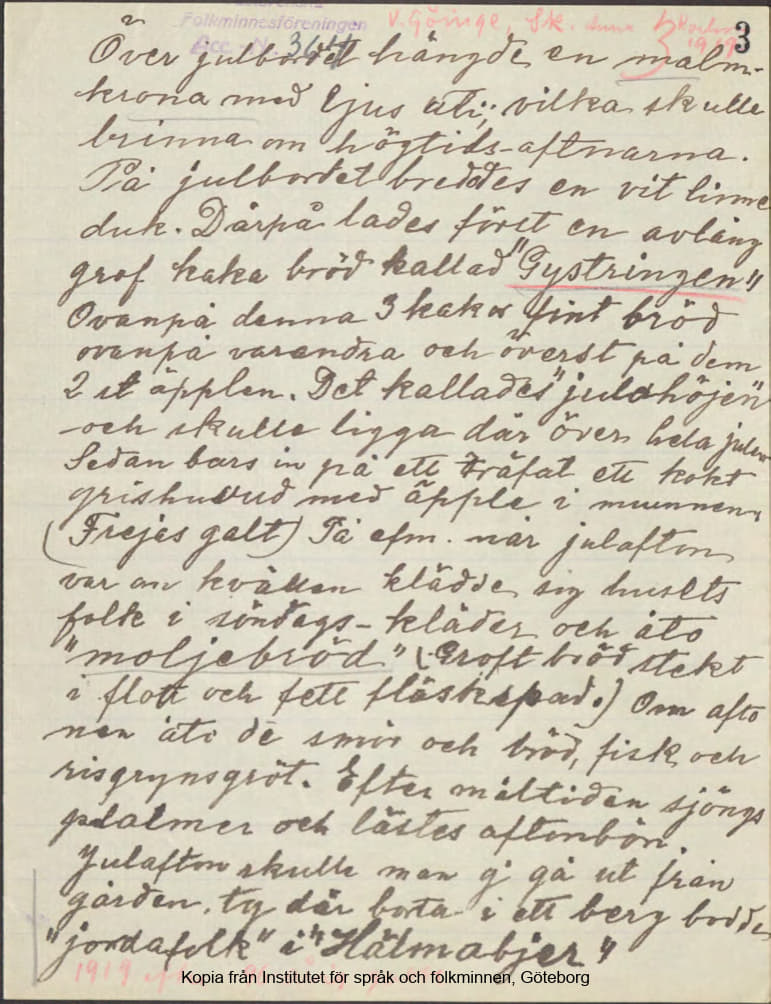 Folkminnesföreningen
Acc. N. 3644
V. Göinge, Sk.
1919
3
Över julbordet hängde en malm-
krona med ljus uti, vilka skulle
brinna om högtids-aftnarna.
På julbordet breddes en vit linne
duk. Därpå lades först en avlång
grof kaka bröd kallad "Gystringen"
Ovanpå denna 3 kakor fint bröd
ovanpå varandra och överst på dem
2 st äpplen. Det kallades "julahöjen"
och skulle ligga där över hela julen
Sedan bars in på ett träfat ett kokt
grishuvud med äpple i munnen
(Frejes galt) På efm. när julafton
var om kvällen klädde sig husets
folk i söndags-kläder och åto
"moljebröd" (Groft bröd stekt
i flott och fett fläskspad.) Om afto
nen åto de smör och bröd, fisk och
risgrynsgröt. Efter måltiden sjöngs
psalmer och lästes aftonbön.
Julafton skulle man ej gå ut från
gården, ty där borta i ett berg bodde
"jordafolk" i "Hälmabjer"
1919
Kopia från Institutet för språk och folkminnen, Göteborg